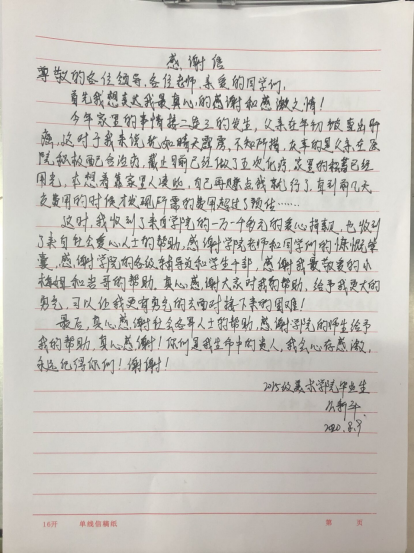 感谢信
尊敬的各位领导、各位老师、亲爱的同学们:
首先我想表达我最真心的感谢和感激之情!
今年家里的事情接二连三的发生,父亲在年初被查出肝
癌,这对于我来说犹如晴天霹雳,不知所措,庆幸的是父亲在医
院积极配合治疗,截止目前已经做了五次化疗,家里的积蓄已经
用光,本想着靠家里人凑些,自己再赚点钱就行了,直到前几天
交费用的时候才发现所需的费用超过了预估……
这时,我收到了来自学院的一万一千多元的爱心捐款,也收到
了来自社会爱心人士的帮助,感谢学院老师和同学们的慷慨解
囊,感谢学院的各级辅导员和学生干部,感谢我最敬爱的小
梅姐和岩哥的帮助,真心感谢大家对我的帮助,给予我更大的
勇气,可以让我更有勇气的去面对接下来的困难!
最后,真心感谢社会各界人士的帮助,感谢学院的师生给予
我的帮助,真心感谢!你们是我生命中的贵人,我会心存感激,
永远记得你们!谢谢!
2015级美术学院毕业生
2020.8.9
16开 单线信稿纸 第 页